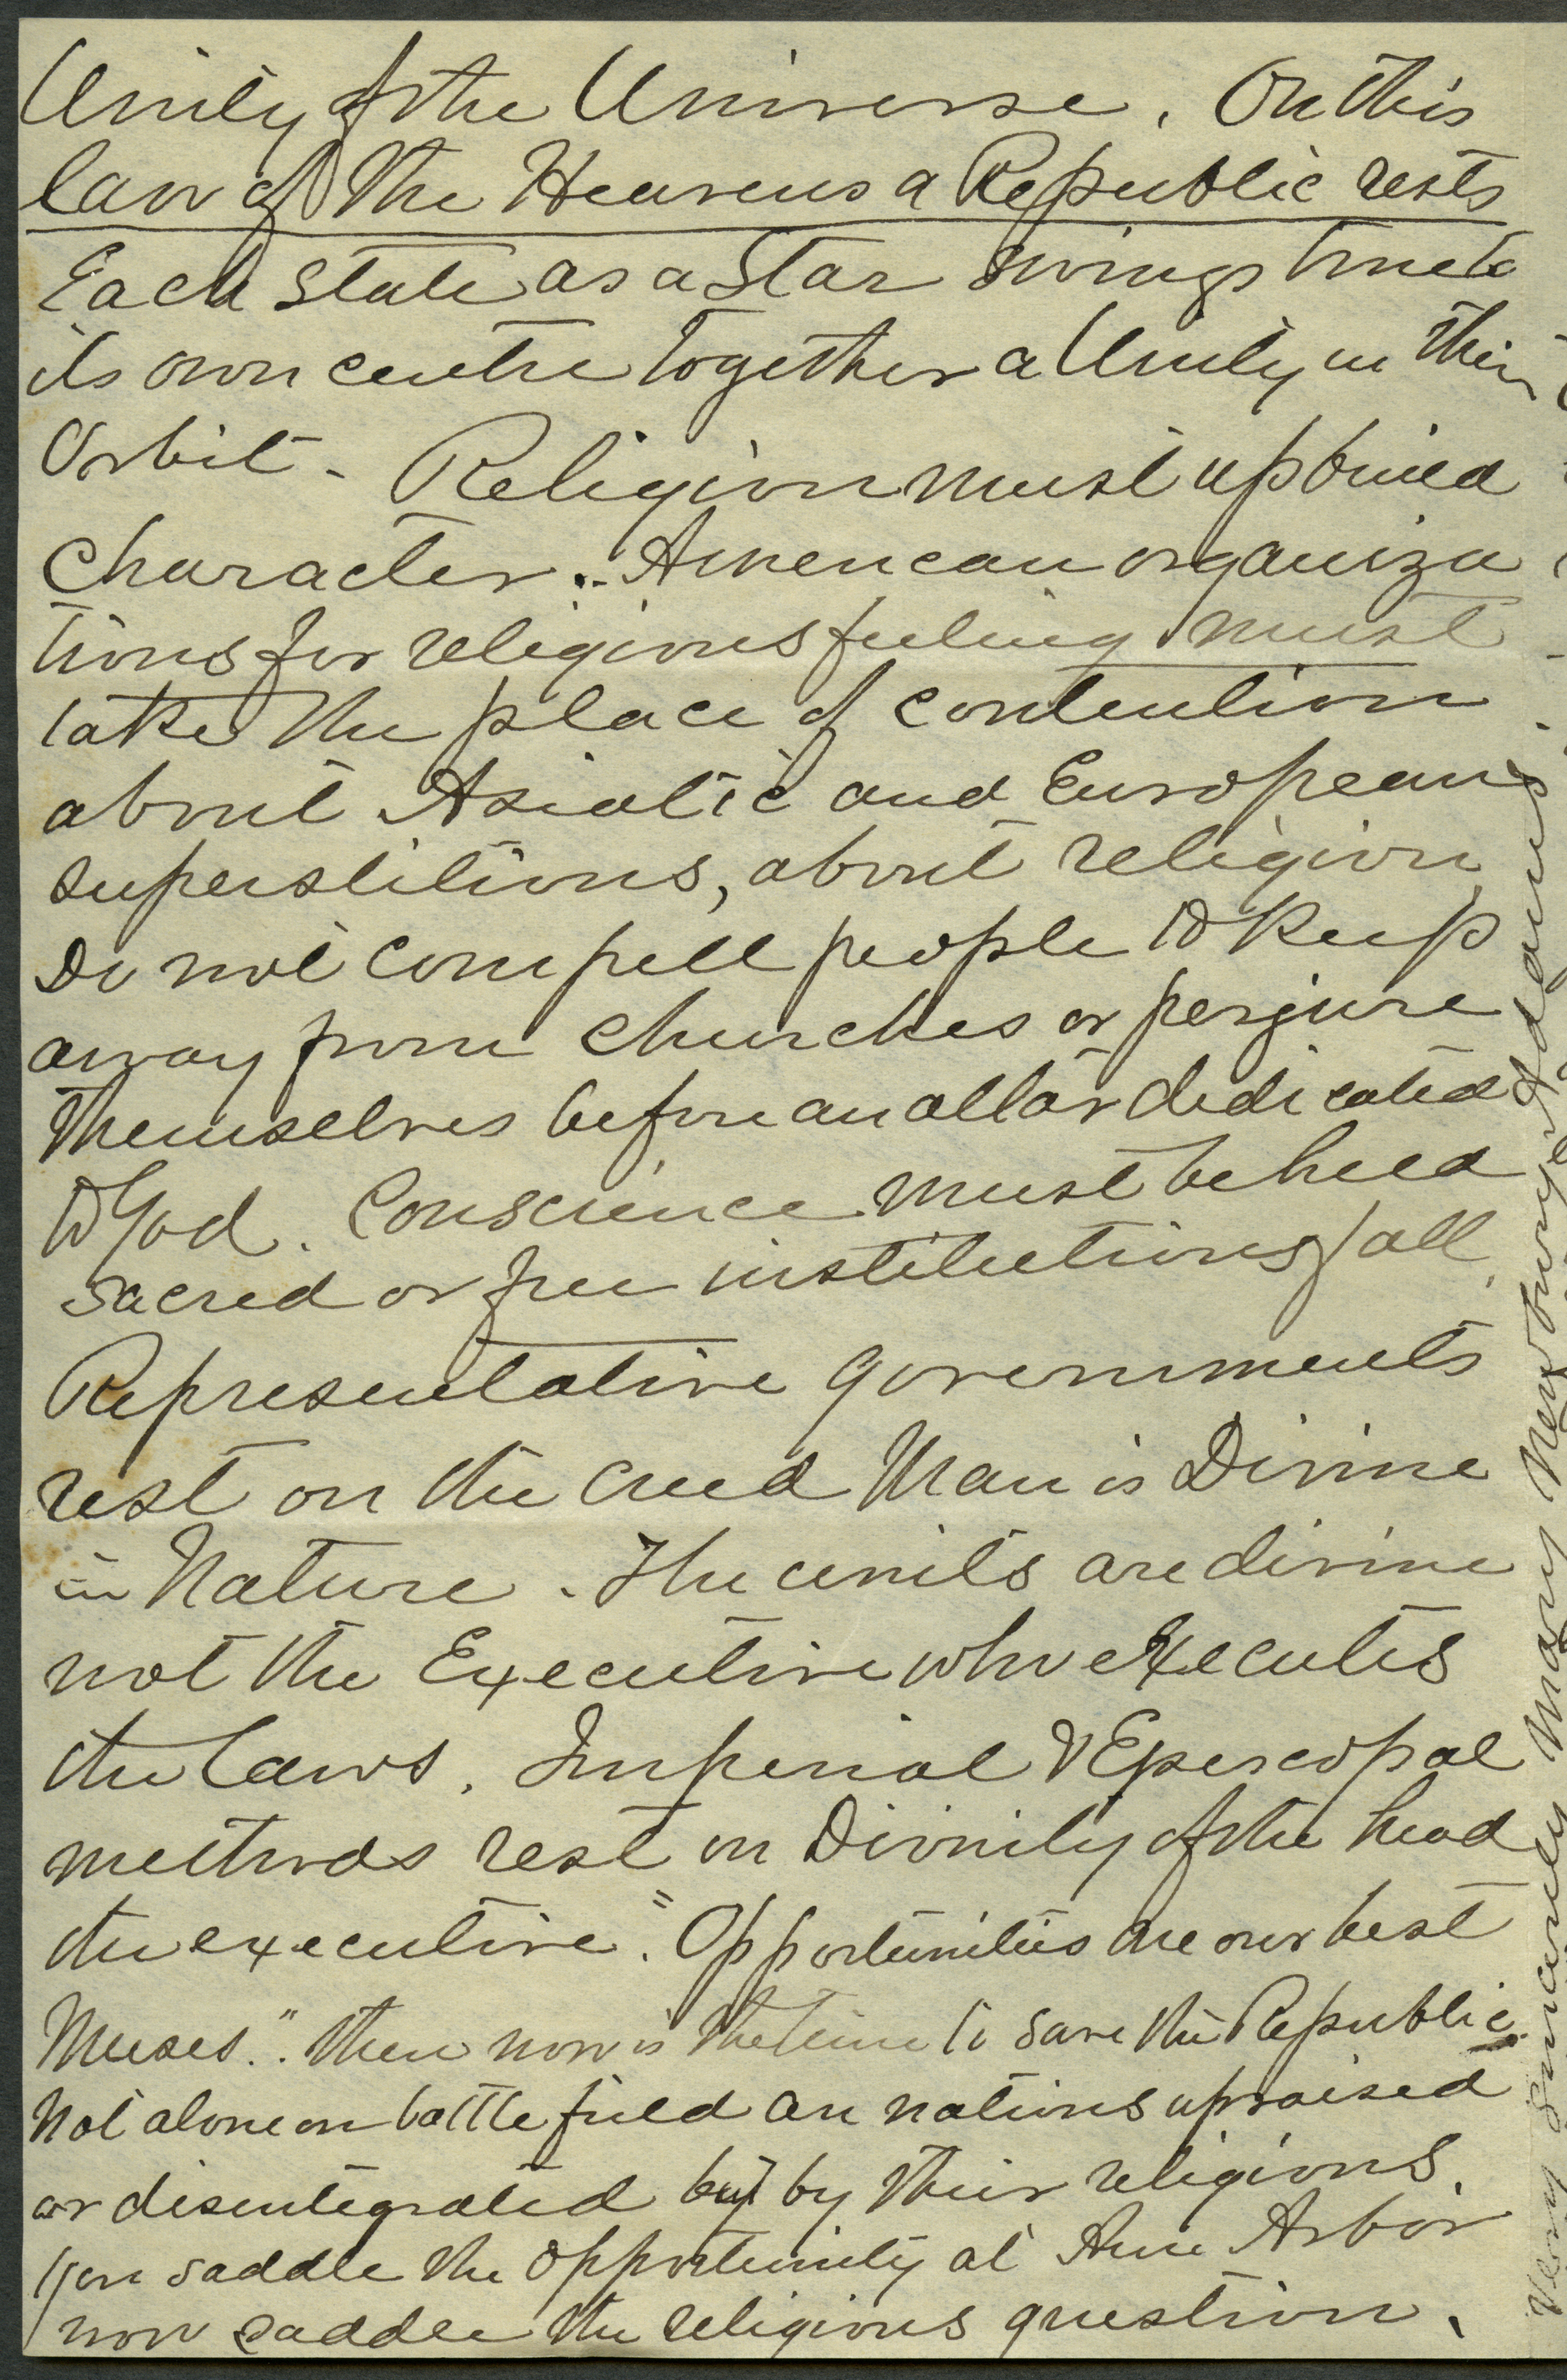 Unity of the Universe. On this
law of the Heavens a Republic rests
Each State as a Star swings true to
its own centre together a Unity in their
Orbit - Religion must upbuild
Character. American organiza
tions for religious feeling must
take the place of contention
about Asiatic and European
superstitions, about religion
Do not compell people to keep
away from churches or perjure
themselves before an altar dedicated
to God. Conscience must be held
sacred or free institutions fall
Representative governments
rest on the creed Man is Divine
in Nature. The units are divine
not the Executive who executes
the laws. Imperial & Episcopal
methods rest on Divinity of the head
the executive. "Opportunities are our best
Muses." then now is the time to save the Republic.
Not alone on battle field are nations upraised
or disentegrated but by their religions.
You saddle the opportunity at Ann Arbor
now saddle the religious question.
Very Sincerely Mary Newbury Adams